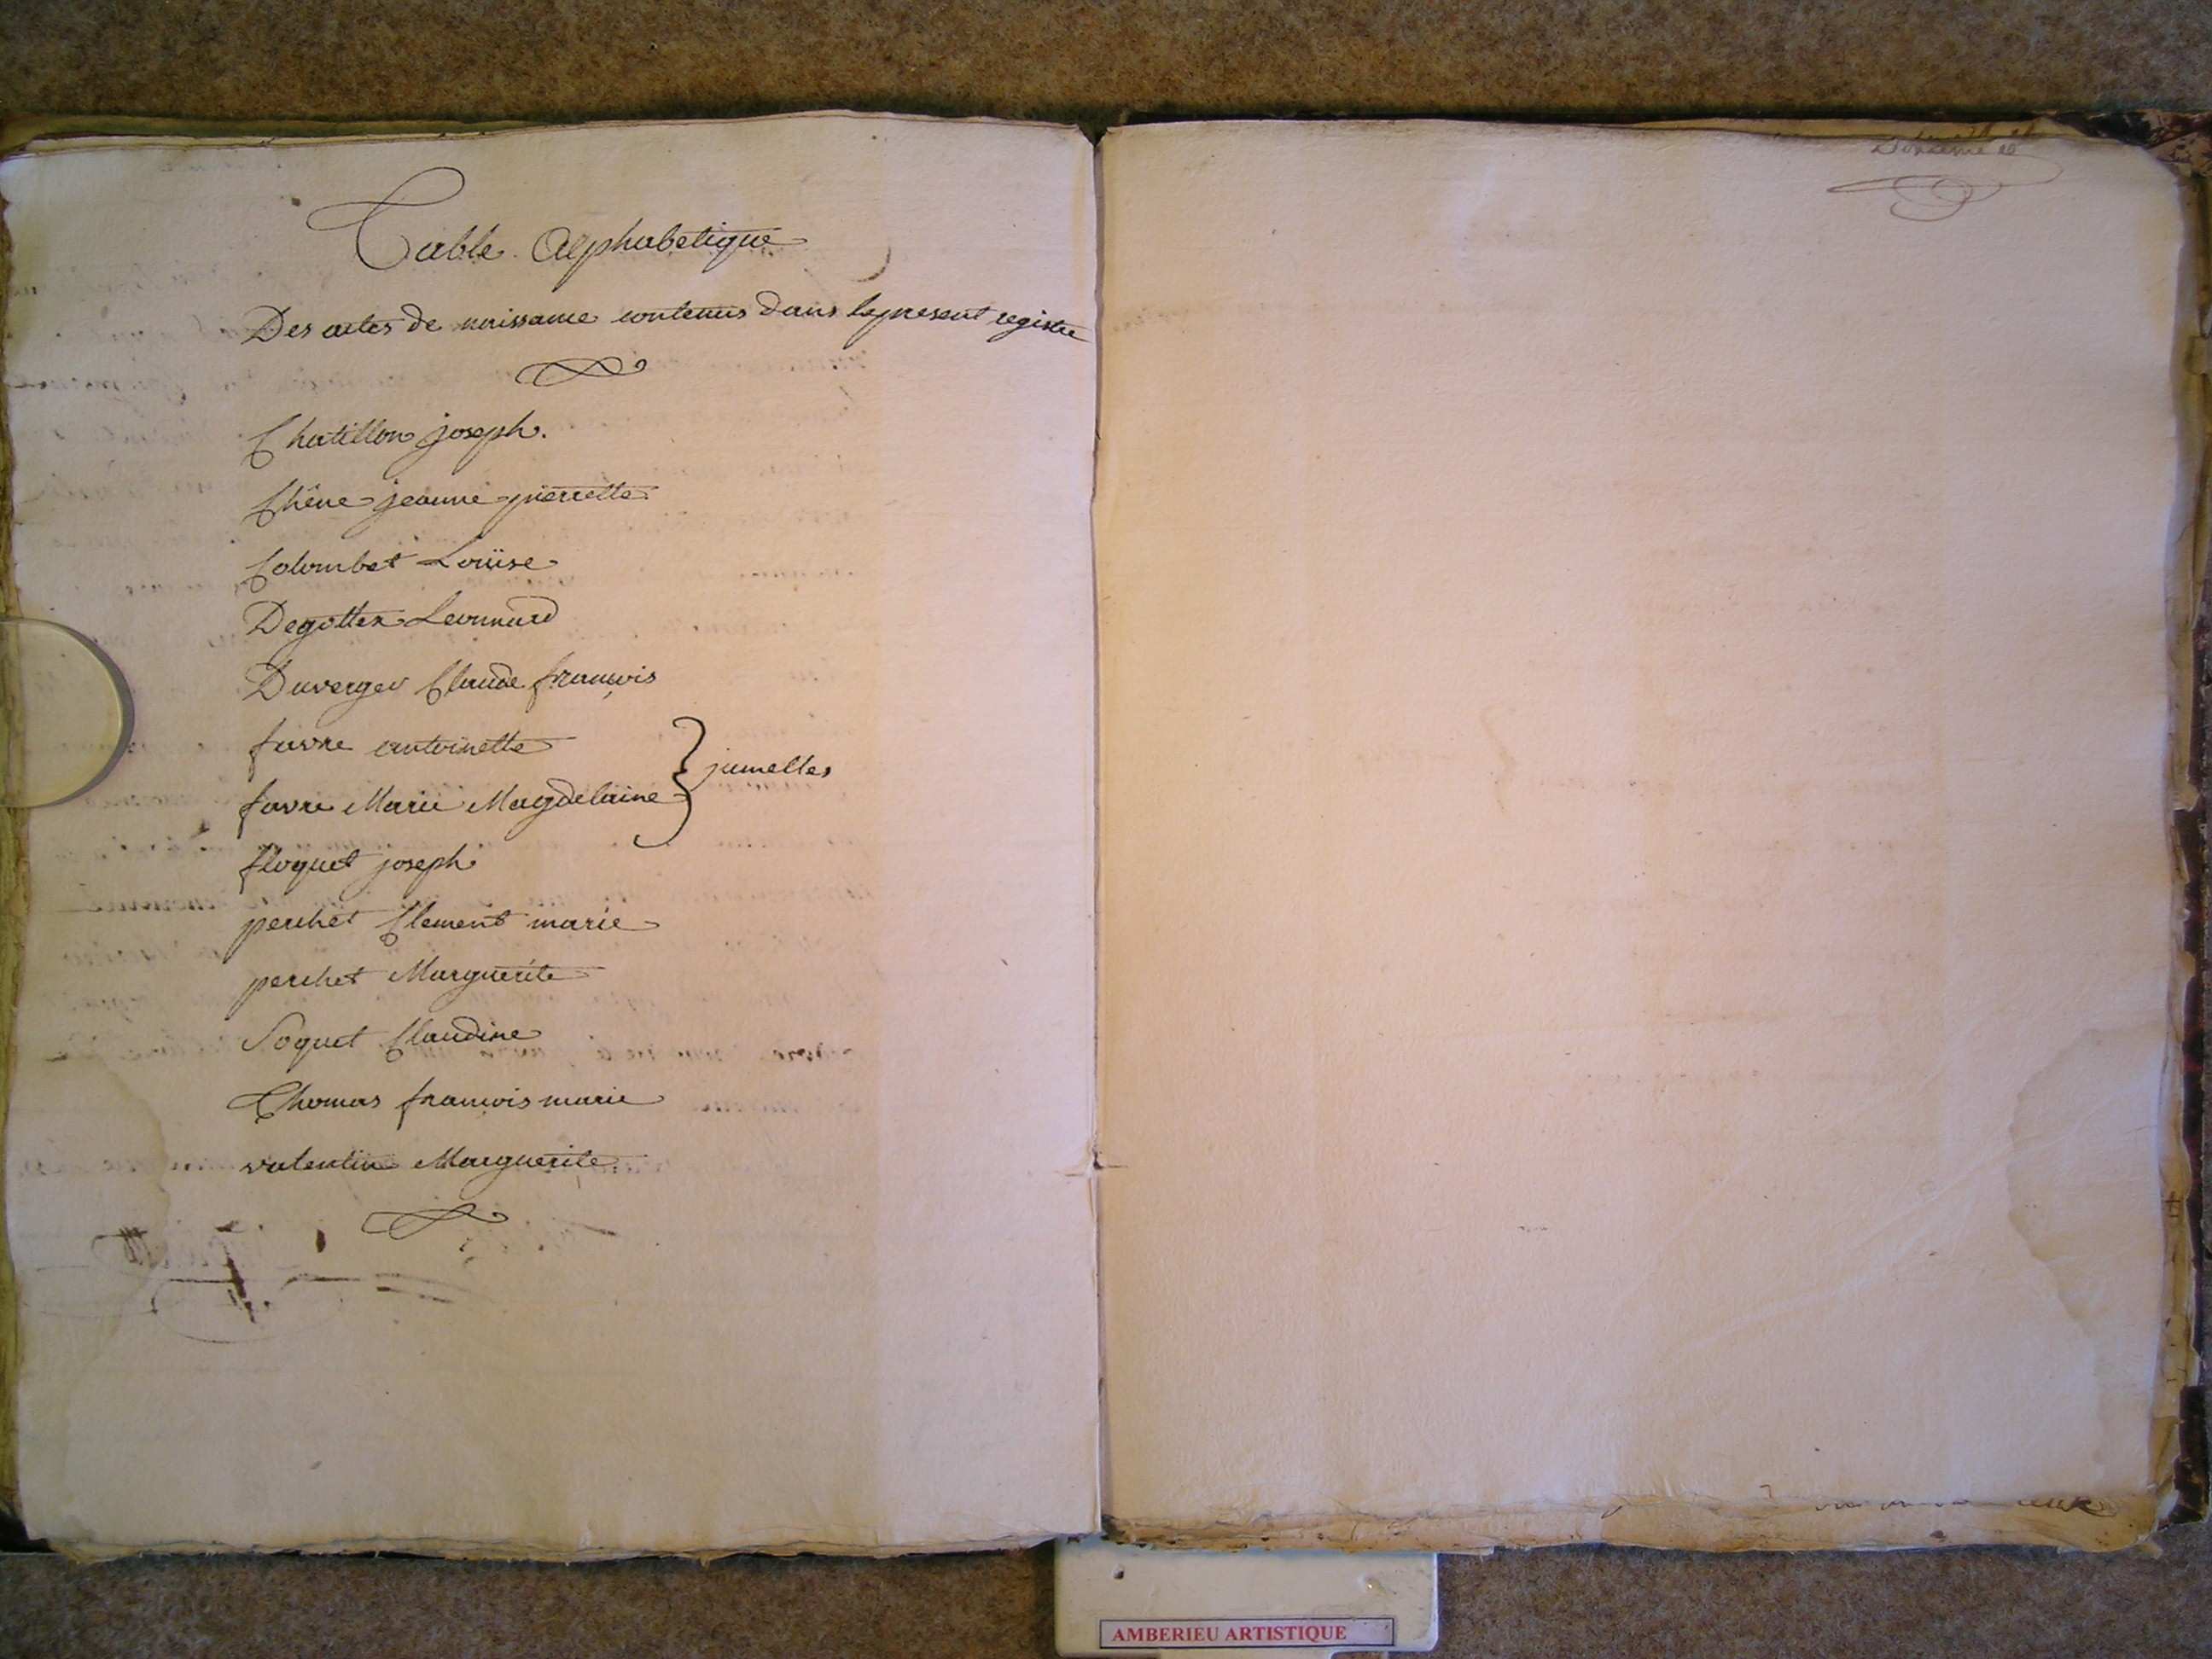 Table Alphabetique
Des actes de naissance contenus dans le present registre
Chatillon joseph.
Chêne jeanne pierrette
Colombet Louïse
Degottex Leonnard
Duverger Claude françois
favre antoinette
favre Marie Magdelaine } jumelles
floquet joseph
perchet Clement marie
perchet Marguerite
Soquet Claudine
Thomas francois marie
valentin Marguerite
AMBERIEU ARTISTIQUE